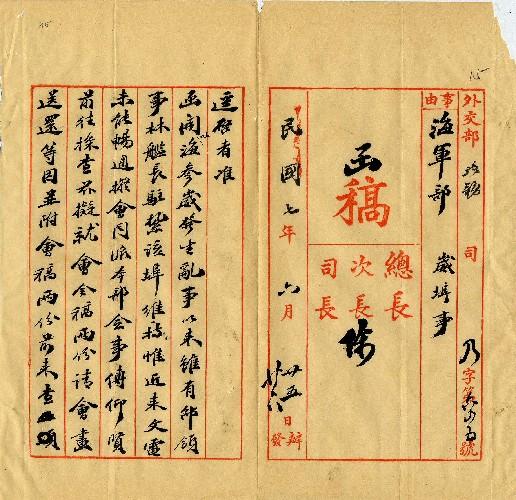 外交部 政務 司 乃字第 號
事由
海軍部 崴埠事
函稿
總長
次長
司長
民國七年六月
廿五日辦
發
逕啓者准
函開海參崴發生亂事以來雖有邵領
事林艦長駐紮該埠維持惟近來文電
未能暢通擬會同派本部僉事傅仰賢
前往探查茲擬就會令稿兩份請會畫
送還等因並附會稿兩份前來查